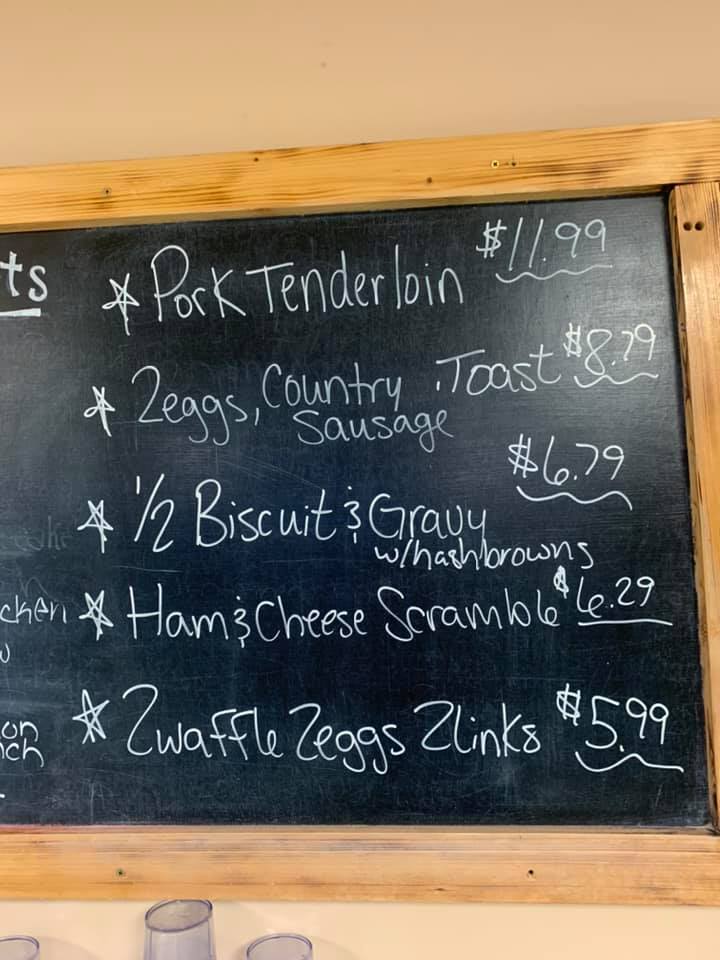 ts
☆ Pork Tenderloin $11.99
☆ 2eggs, Country Sausage .Toast $8.79
☆ 1/2 Biscuit & Gravy $6.79
w/hashbrowns
☆ Ham & Cheese Scramble $6.29
☆ 2waffle 2eggs 2links $5.99
cken
on
ch